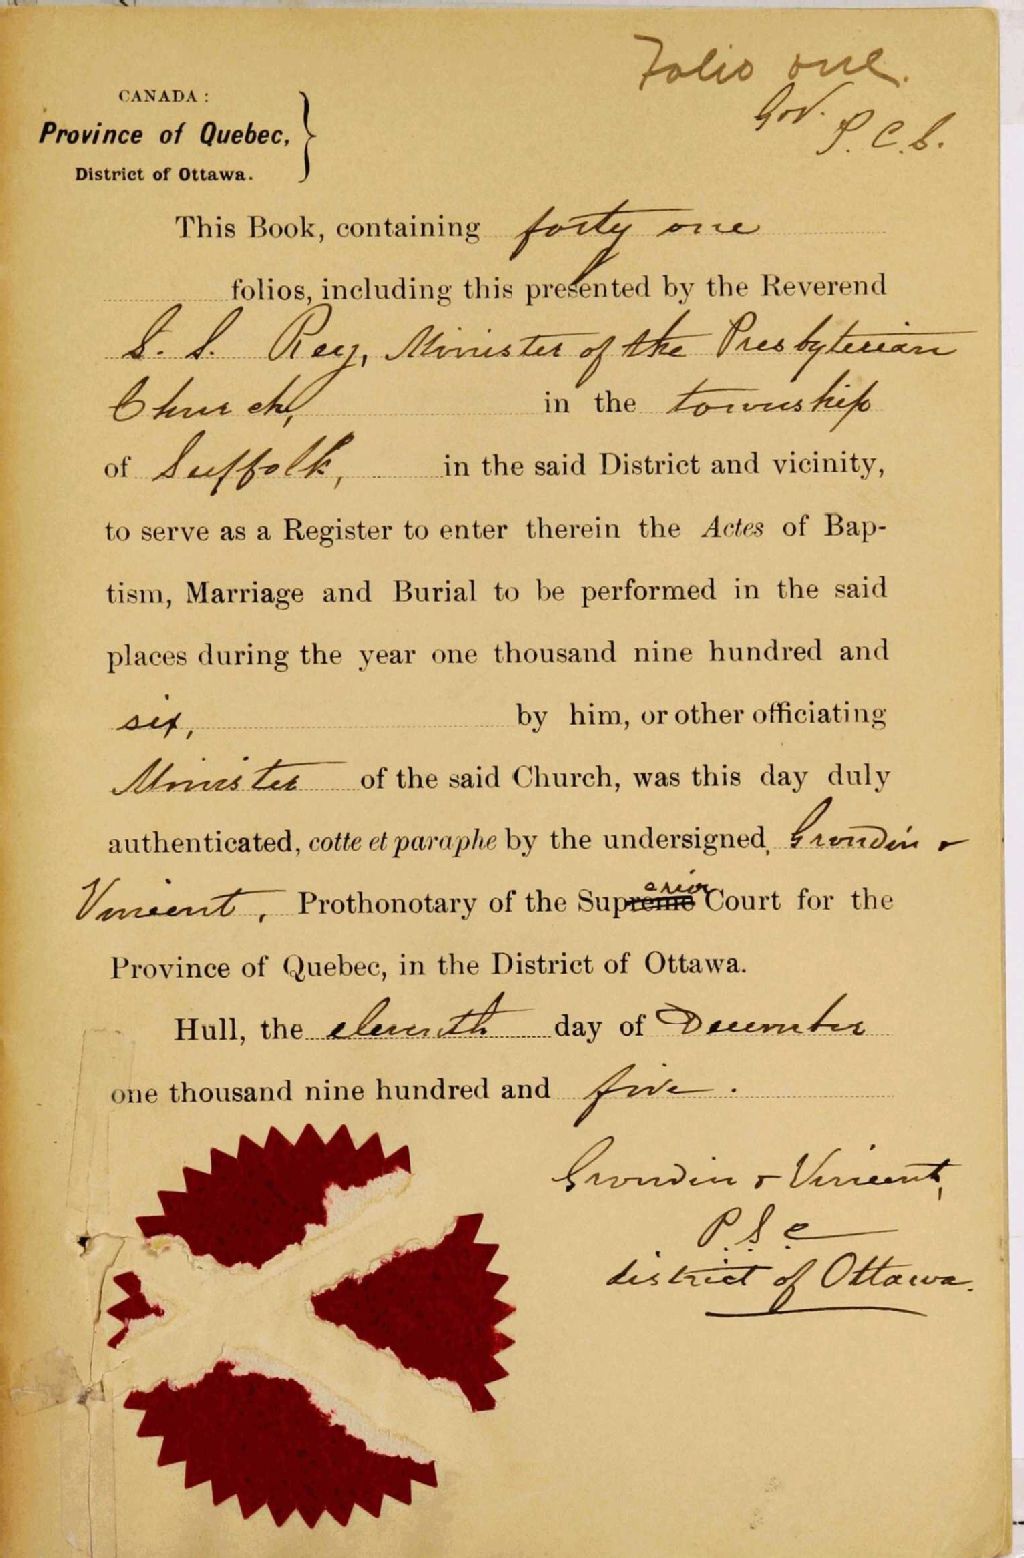 Folio one.
CANADA:
Province of Quebec,
District of Ottawa.
This Book, containing forty one
folios, including this presented by the Reverend
S. S. Rey, Minister of the Presbyterian
Church, in the township
of Suffolk, in the said District and vicinity,
to serve as a Register to enter therein the Actes of Bap-
tism, Marriage and Burial to be performed in the said
places during the year one thousand nine hundred and
six, by him, or other officiating
Minister of the said Church, was this day duly
authenticated, cotte et paraphe by the undersigned, Grondin &
Vincent, Prothonotary of the Superior Court for the
Province of Quebec, in the District of Ottawa.
Hull, the eleventh day of December
one thousand nine hundred and five.
Grondin & Vincent,
P.S.C
district of Ottawa.